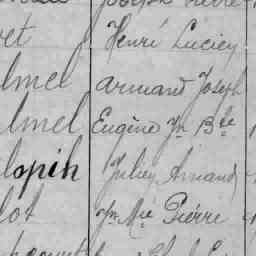 Joseph Pierre
et Henri Lucien
lmel Armand Joseph
lmel Eugène Jn Bte
lopin Julien Amand
lot Jn Mie Pierre